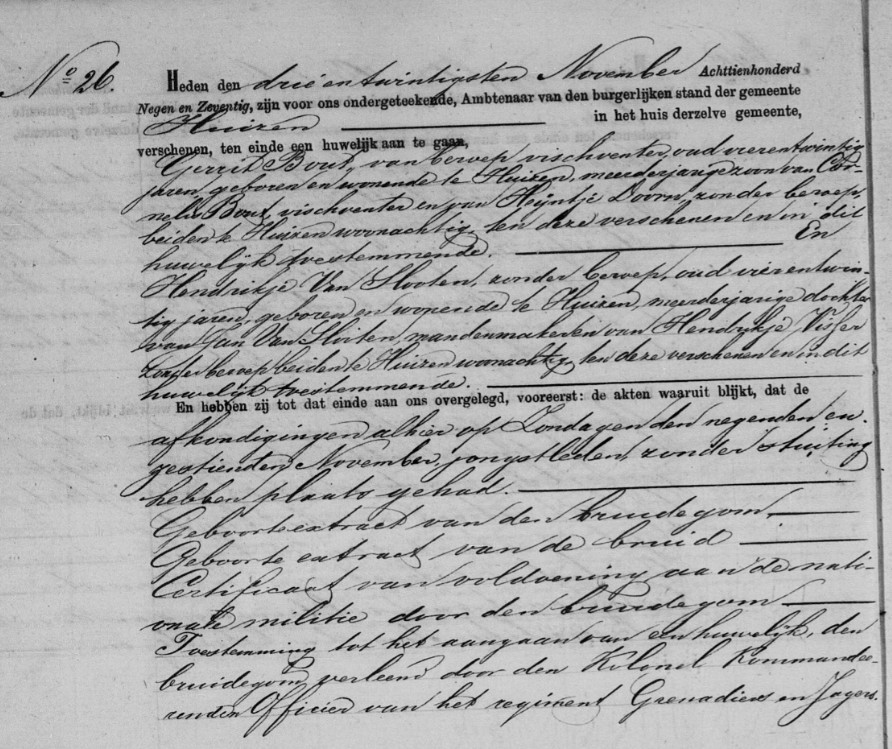 Nº 26.
Heden den drie en twintigsten November Achttienhonderd
Negen en Zeventig, zijn voor ons ondergeteekende, Ambtenaar van den burgerlijken stand der gemeente
Huizen in het huis derzelve gemeente,
verschenen, ten einde een huwelijk aan te gaan,
Gerrit Bout, van beroep vischventer, oud vierentwintig
jaren, geboren en wonende te Huizen, meerderjarige zoon van Cor-
nelis Bout, vischventer en van Heijntje Doorn, zonder beroep,
beiden te Huizen woonachtig, ten deze verschenen en in dit
huwelijk toestemmende. En
Hendrikje Van Slooten, zonder beroep, oud vierentwin-
tig jaren, geboren en wonende te Huizen, meerderjarige dochter
van Jan Van Slooten, mandenmaker en van Hendrikje Visser
zonder beroep beiden te Huizen woonachtig, ten deze verschenen en in dit
huwelijk toestemmende.
En hebben zij tot dat einde aan ons overgelegd, vooreerst: de akten waaruit blijkt, dat de
afkondigingen alhier op Zondagen den negenden en
zestienden November, jongstleden, zonder stuiting
hebben plaats gehad.
Geboorteextract van den bruidegom,
Geboorte extract van de bruid
Certificaat van voldoening aan de nati-
onale militie door den bruidegom
Toestemming tot het aangaan van een huwelijk, den
bruidegom verleend door den Kolonel Kommandee-
renden Officier van het regiment Grenadiers en Jagers.